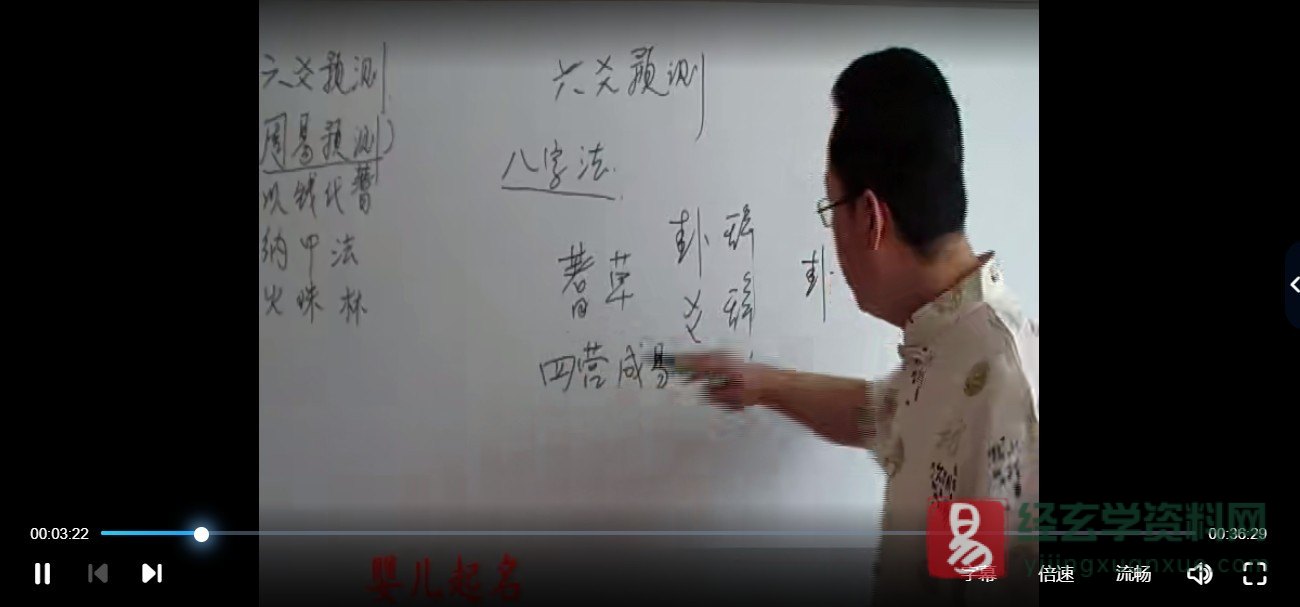 六爻预测
周易预测)
以钱代蓍
纳甲法
火珠林
六爻预测
八字法
蓍草
卦辞
爻辞
卦
四营成易
婴儿起名
00:03:22
00:36:29
字幕
倍速
流畅
易
经玄学资料网
yijingxuanxue.com